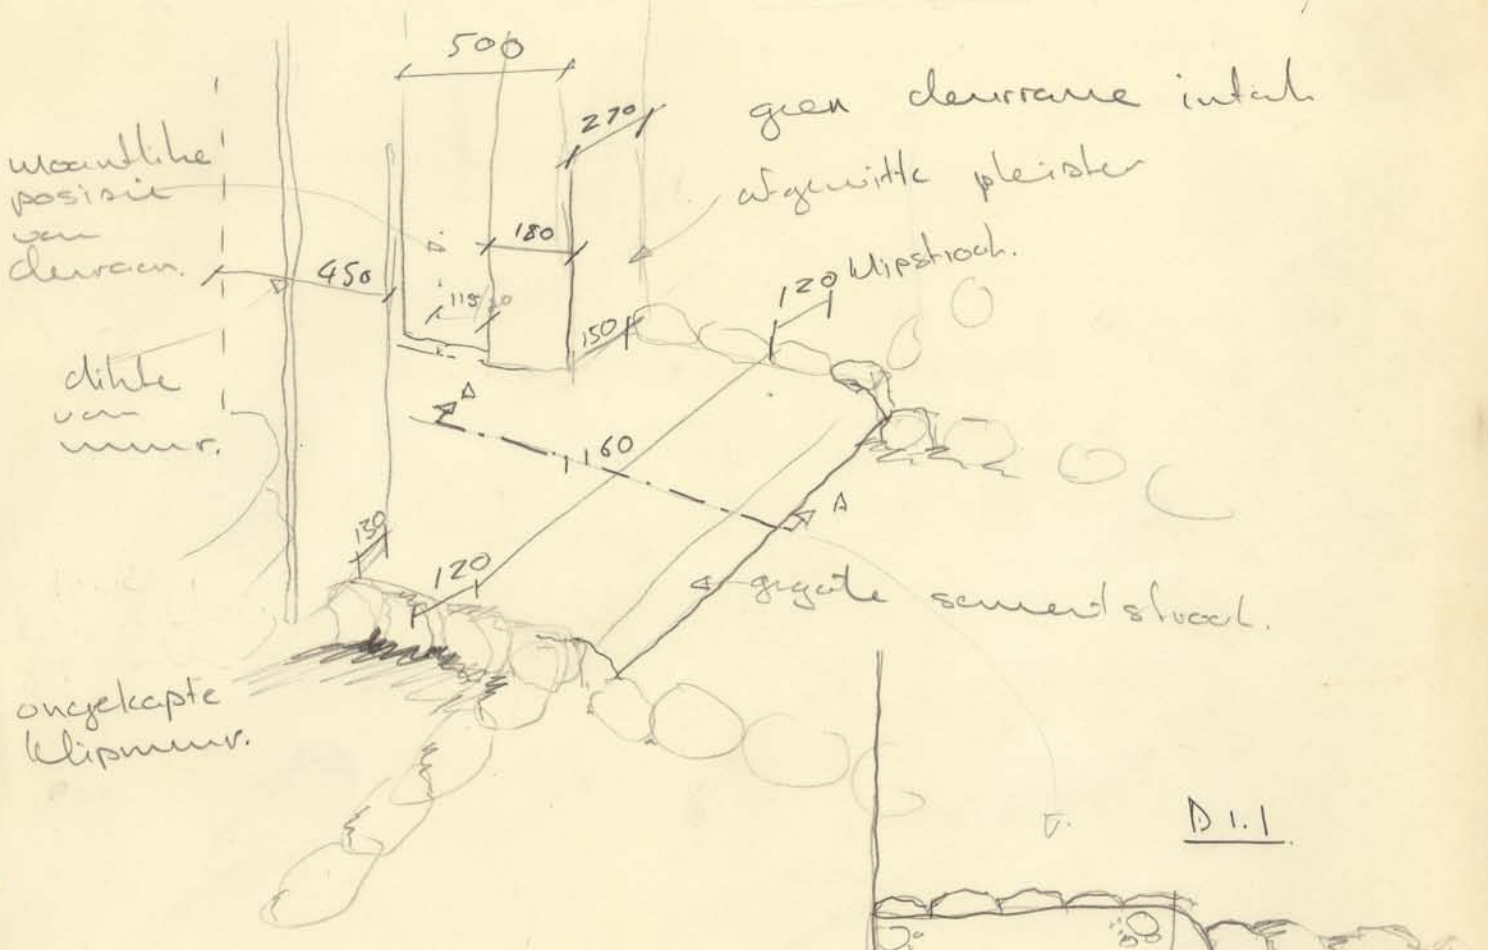 500
270
geen deurrame intak
afgewitte pleister
moontlike
posisie
van
deurraam.
180
450
115
120 klipstrook.
150
dikte
van
muur.
A
1160
A
130
120
gegote sementstrook.
ongekapte
klipmuur.
D 1.1